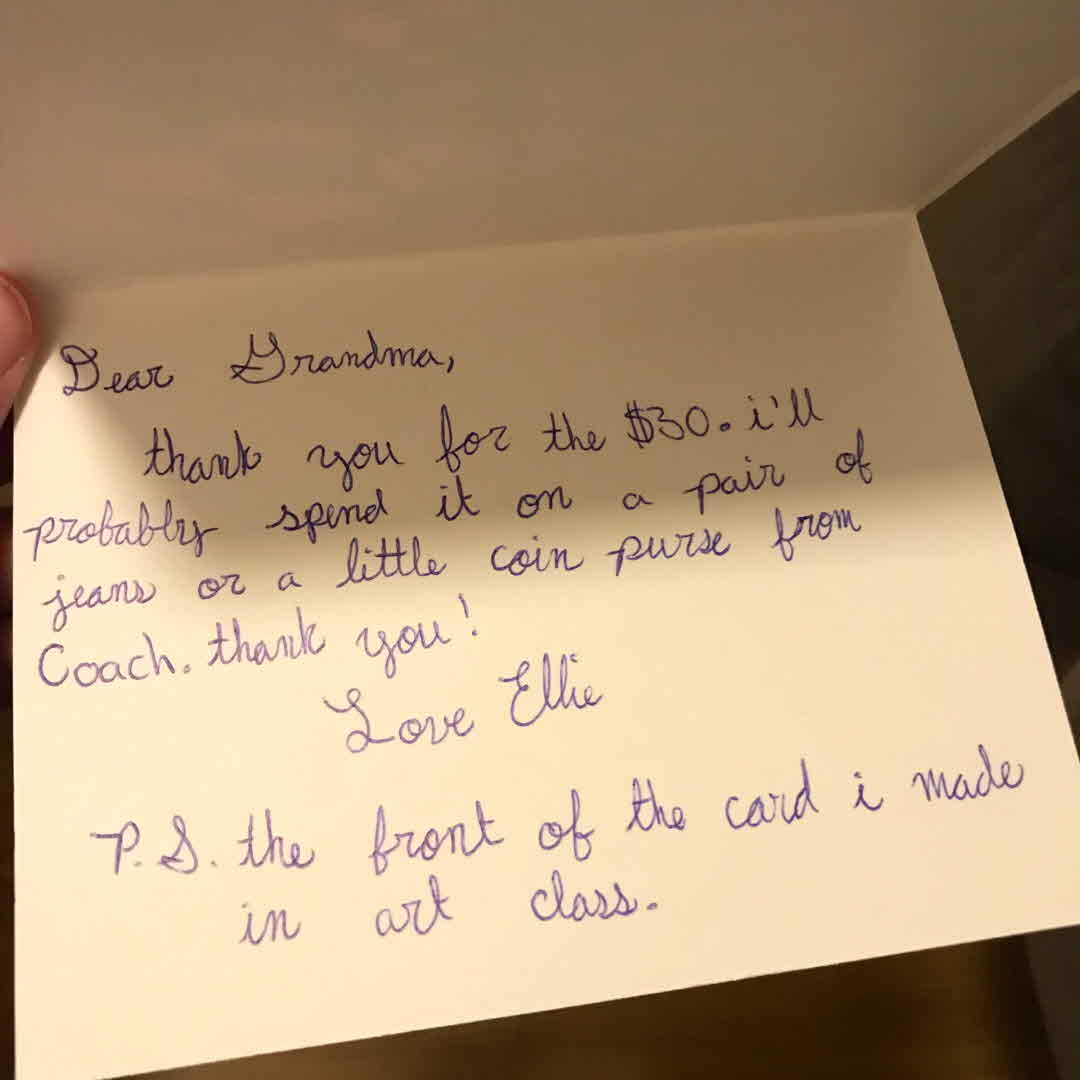 Dear Grandma,
thank you for the $30. i'll
probably spend it on a pair of
jeans or a little coin purse from
Coach. thank you!
Love Ellie
P.S. the front of the card i made
in art class.